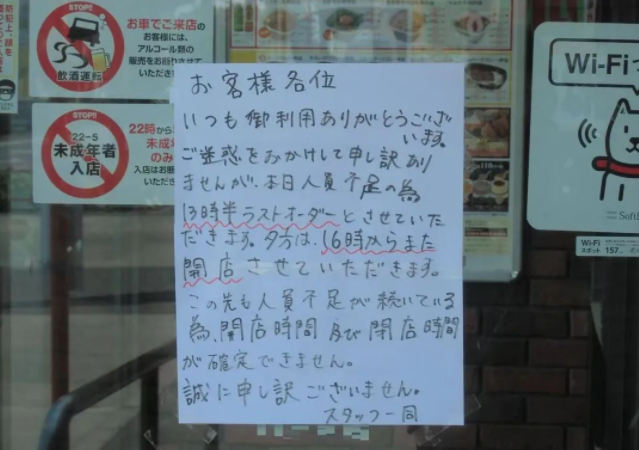 STOP!!
飲酒運転
お車でご来店の
お客様には、
アルコール類の
販売をお断りさせて
いただき
STOP!!
22-5
未成年者
入店
22時から
未成年
のみ
入店はお断
お客様各位
いつも御利用ありがとうござい
います。
ご迷惑をおかけして申し訳あり
ませんが、本日人員不足の為
13時半ラストオーダーとさせていた
だきます。夕方は、16時からまた
開店させていただきます。
この先も人員不足が続いている
為、開店時間及び閉店時間
が確定できません。
誠に申し訳ございません。
スタッフ一同
Wi-Fiつ
SoftB
Wi-Fi
スポット
157